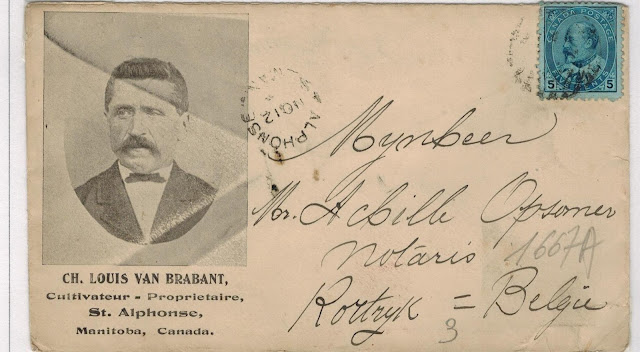 CH. LOUIS VAN BRABANT,
Cultivateur - Proprietaire,
St. Alphonse,
Manitoba, Canada.
ALPHONSE
MAN
12
CANADA POSTAGE
5 CENTS 5
Mynheer
Mr. Achille Opsomer
notaris
Kortryk = Belgie
1667A
3